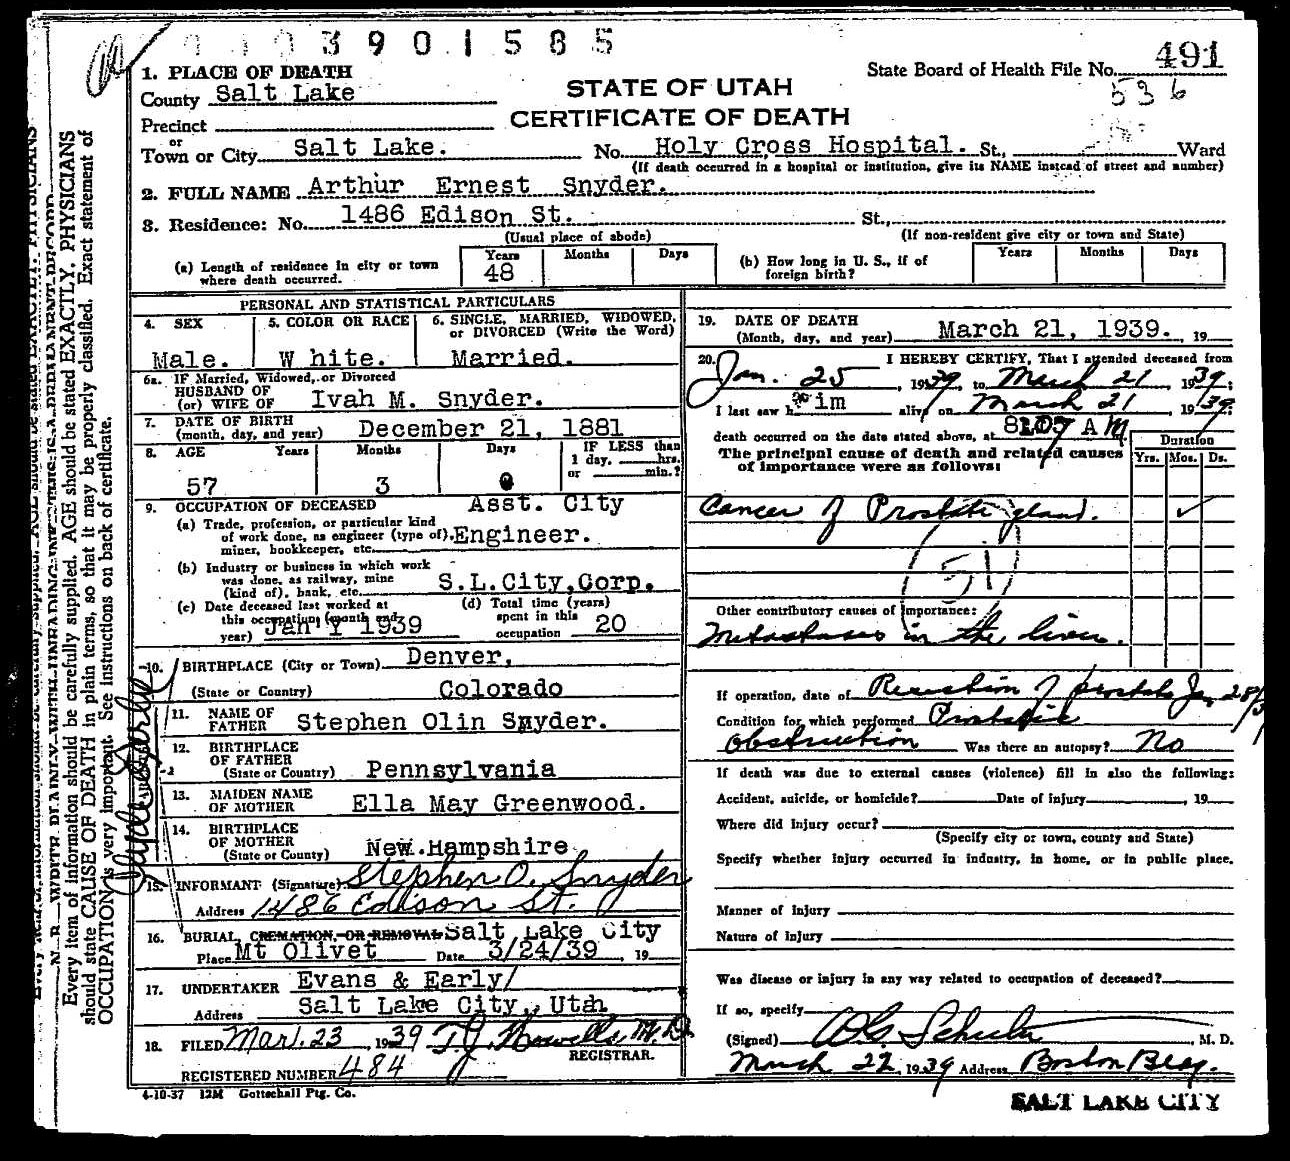 3901585
1. PLACE OF DEATH
County Salt Lake
STATE OF UTAH
CERTIFICATE OF DEATH
State Board of Health File No. 491
536
Precinct
or
Town or City Salt Lake. No. Holy Cross Hospital. St., Ward
(If death occurred in a hospital or institution, give its NAME instead of street and number)
2. FULL NAME Arthur Ernest Snyder.
3. Residence: No. 1486 Edison St. St.,
(Usual place of abode) (If non-resident give city or town and State)
(a) Length of residence in city or town where death occurred. Years 48 Months Days
(b) How long in U. S., if of foreign birth? Years Months Days
PERSONAL AND STATISTICAL PARTICULARS
4. SEX Male.
5. COLOR OR RACE W hite.
6. SINGLE, MARRIED, WIDOWED, or DIVORCED (Write the Word) Married.
6a. IF Married, Widowed, or Divorced
HUSBAND OF
(or) WIFE OF Ivah M. Snyder.
7. DATE OF BIRTH
(month, day, and year) December 21, 1881
8. AGE Years 57 Months 3 Days 0 IF LESS than 1 day, hrs. or min.?
9. OCCUPATION OF DECEASED Asst. City
(a) Trade, profession, or particular kind
of work done, as engineer (type of), Engineer.
miner, bookkeeper, etc.
(b) Industry or business in which work
was done, as railway, mine
(kind of), bank, etc. S.L.City,Corp.
(c) Date deceased last worked at
this occupation (month and
year) Jan 1 1939
(d) Total time (years)
spent in this
occupation 20
10. BIRTHPLACE (City or Town) Denver,
(State or Country) Colorado
11. NAME OF
FATHER Stephen Olin Snyder.
12. BIRTHPLACE
OF FATHER
(State or Country) Pennsylvania
13. MAIDEN NAME
OF MOTHER Ella May Greenwood.
14. BIRTHPLACE
OF MOTHER
(State or Country) New.Hampshire
15. INFORMANT (Signature) Stephen O. Snyder
Address 1486 Edison St.
16. BURIAL, CREMATION, OR REMOVAL Salt Lake City
Place Mt Olivet Date 3/24/39, 19
17. UNDERTAKER Evans & Early/
Address Salt Lake City,, Utah
18. FILED Mar. 23, 1939 T.J. Howells, M.D.
REGISTRAR.
REGISTERED NUMBER 484
4-10-37 12M Gottschall Ptg. Co.
19. DATE OF DEATH
(Month, day, and year) March 21, 1939. 19
20. I HEREBY CERTIFY, That I attended deceased from
Jan. 25, 1939, to March 21, 1939;
I last saw him alive on March 21, 1939;
death occurred on the date stated above, at A M.
The principal cause of death and related causes
of importance were as follows:
Duration
Yrs. Mos. Ds.
Cancer of Prostate gland. ✓
51
Other contributory causes of importance:
Metastases in the liver.
If operation, date of Resection of prostate Jan 28/39
Condition for which performed Prostatic
obstruction Was there an autopsy? No
If death was due to external causes (violence) fill in also the following:
Accident, suicide, or homicide? Date of injury, 19
Where did injury occur?
(Specify city or town, county and State)
Specify whether injury occurred in industry, in home, or in public place.
Manner of injury
Nature of injury
Was disease or injury in any way related to occupation of deceased?
If so, specify
(Signed) M. D.
March 22, 1939 Address Boston Bldg.
SALT LAKE CITY
Every item of information should be carefully supplied. AGE should be stated EXACTLY. PHYSICIANS
should state CAUSE OF DEATH in plain terms, so that it may be properly classified. Exact statement of
OCCUPATION is very important. See instructions on back of certificate.